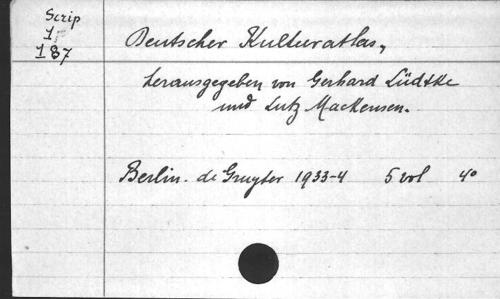 Scrip
1
187
Deutscher Kulturatlas,
herausgegeben von Gerhard Lüdtke
und Lutz Mackensen.
Berlin. de Gruyter 1933-4 5 vol 4°